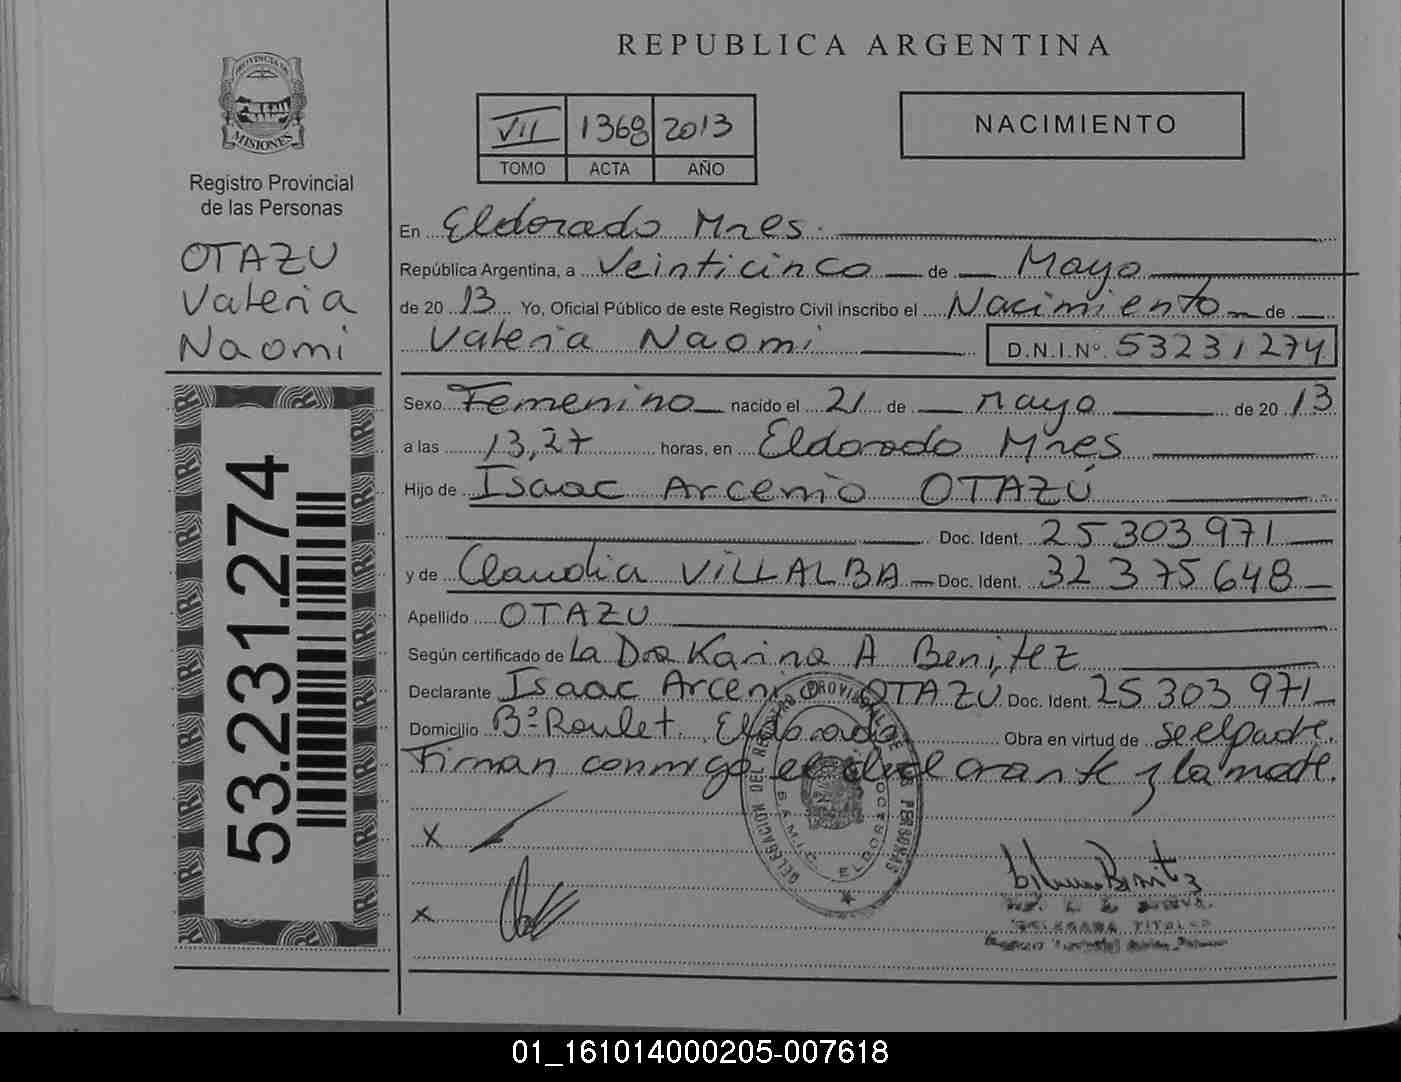 REPUBLICA ARGENTINA
PROVINCIA DE
MISIONES
Registro Provincial
de las Personas
OTAZU
Valeria
Naomi
53.231.274
VII 1368 2013
TOMO ACTA AÑO
NACIMIENTO
En Eldorado Mnes.
República Argentina, a Veinticinco de Mayo
de 20 13 Yo, Oficial Público de este Registro Civil inscribo el Nacimiento de
Valeria Naomi D.N.I.Nº. 53231274
Sexo Femenino nacido el 21 de Mayo de 20 13
a las 13,27 horas, en Eldorado Mnes
Hijo de Isaac Arcenio OTAZÚ
Doc. Ident. 25 303 971
y de Claudia VILLALBA Doc. Ident. 32 375 648
Apellido OTAZU
Según certificado de La Dra Karina A Benitez
Declarante Isaac Arcenio OTAZU Doc. Ident. 25 303 971
Domicilio Bº Roulet. Eldorado Obra en virtud de se el padre.
Firman conmigo el declarante y la madre.
DELEGACION DEL REGISTRO PROVINCIAL DE LAS PERSONAS
S.A.M.I.C. ELDORADO
X
X
DELEGADA TITULAR
01_161014000205-007618